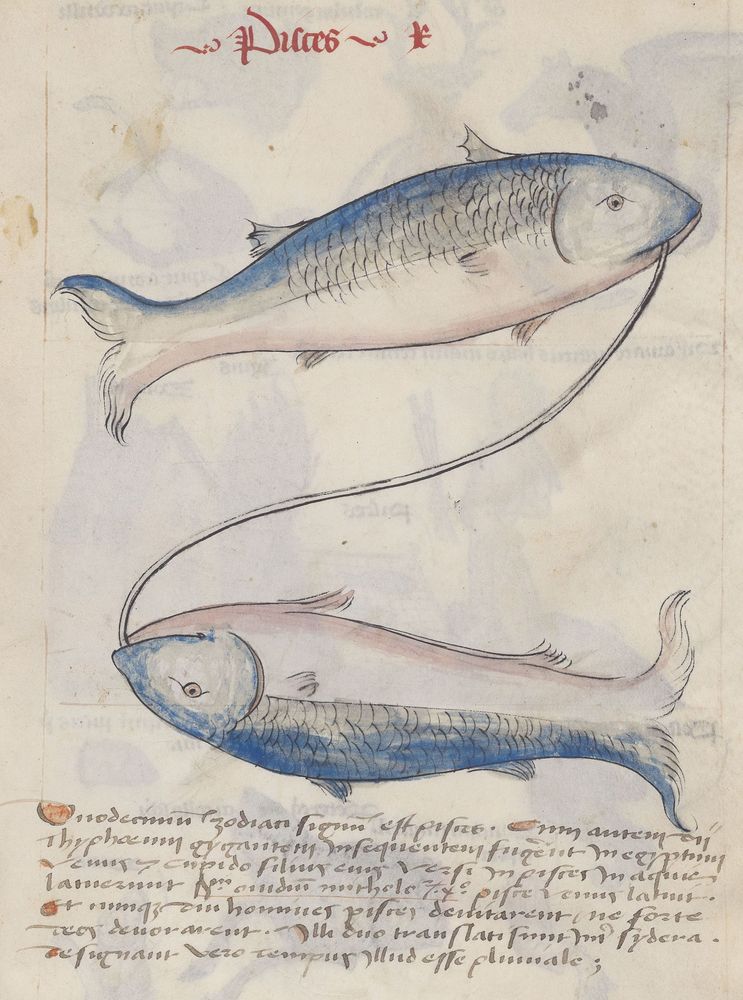 Pisces
Duodecimū zodiaci signū est pisces. Cum autem dii
Thyphoeum gygantem insequentem fugerēt in egyptum
Venus ⁊ cupido filius eius versi in pisces in aquis
latuerunt ovidiū pisce venus latuit.
Et cumqꝫ diu homines pisces devitarent, ne forte
deos devorarent. Illi duo translati sunt int̄ sydera.
designant vero tempus illud esse pluviale;